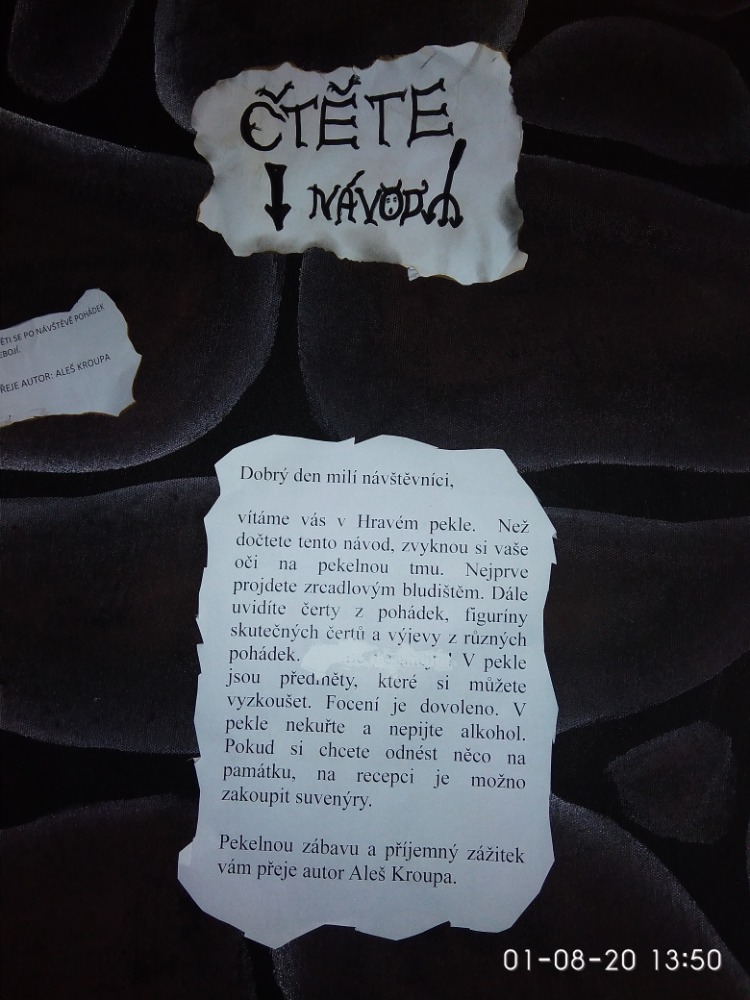 ČTĚTE
NÁVOD
ĚTI SE PO NÁVŠTĚVĚ POHÁDEK
EBOJÍ.
ŘEJE AUTOR: ALEŠ KROUPA
Dobrý den milí návštěvníci,
vítáme vás v Hravém pekle. Než
dočtete tento návod, zvyknou si vaše
oči na pekelnou tmu. Nejprve
projdete zrcadlovým bludištěm. Dále
uvidíte čerty z pohádek, figuríny
skutečných čertů a výjevy z různých
pohádek. V pekle
jsou předměty, které si můžete
vyzkoušet. Focení je dovoleno. V
pekle nekuřte a nepijte alkohol.
Pokud si chcete odnést něco na
památku, na recepci je možno
zakoupit suvenýry.
Pekelnou zábavu a příjemný zážitek
vám přeje autor Aleš Kroupa.
01-08-20 13:50